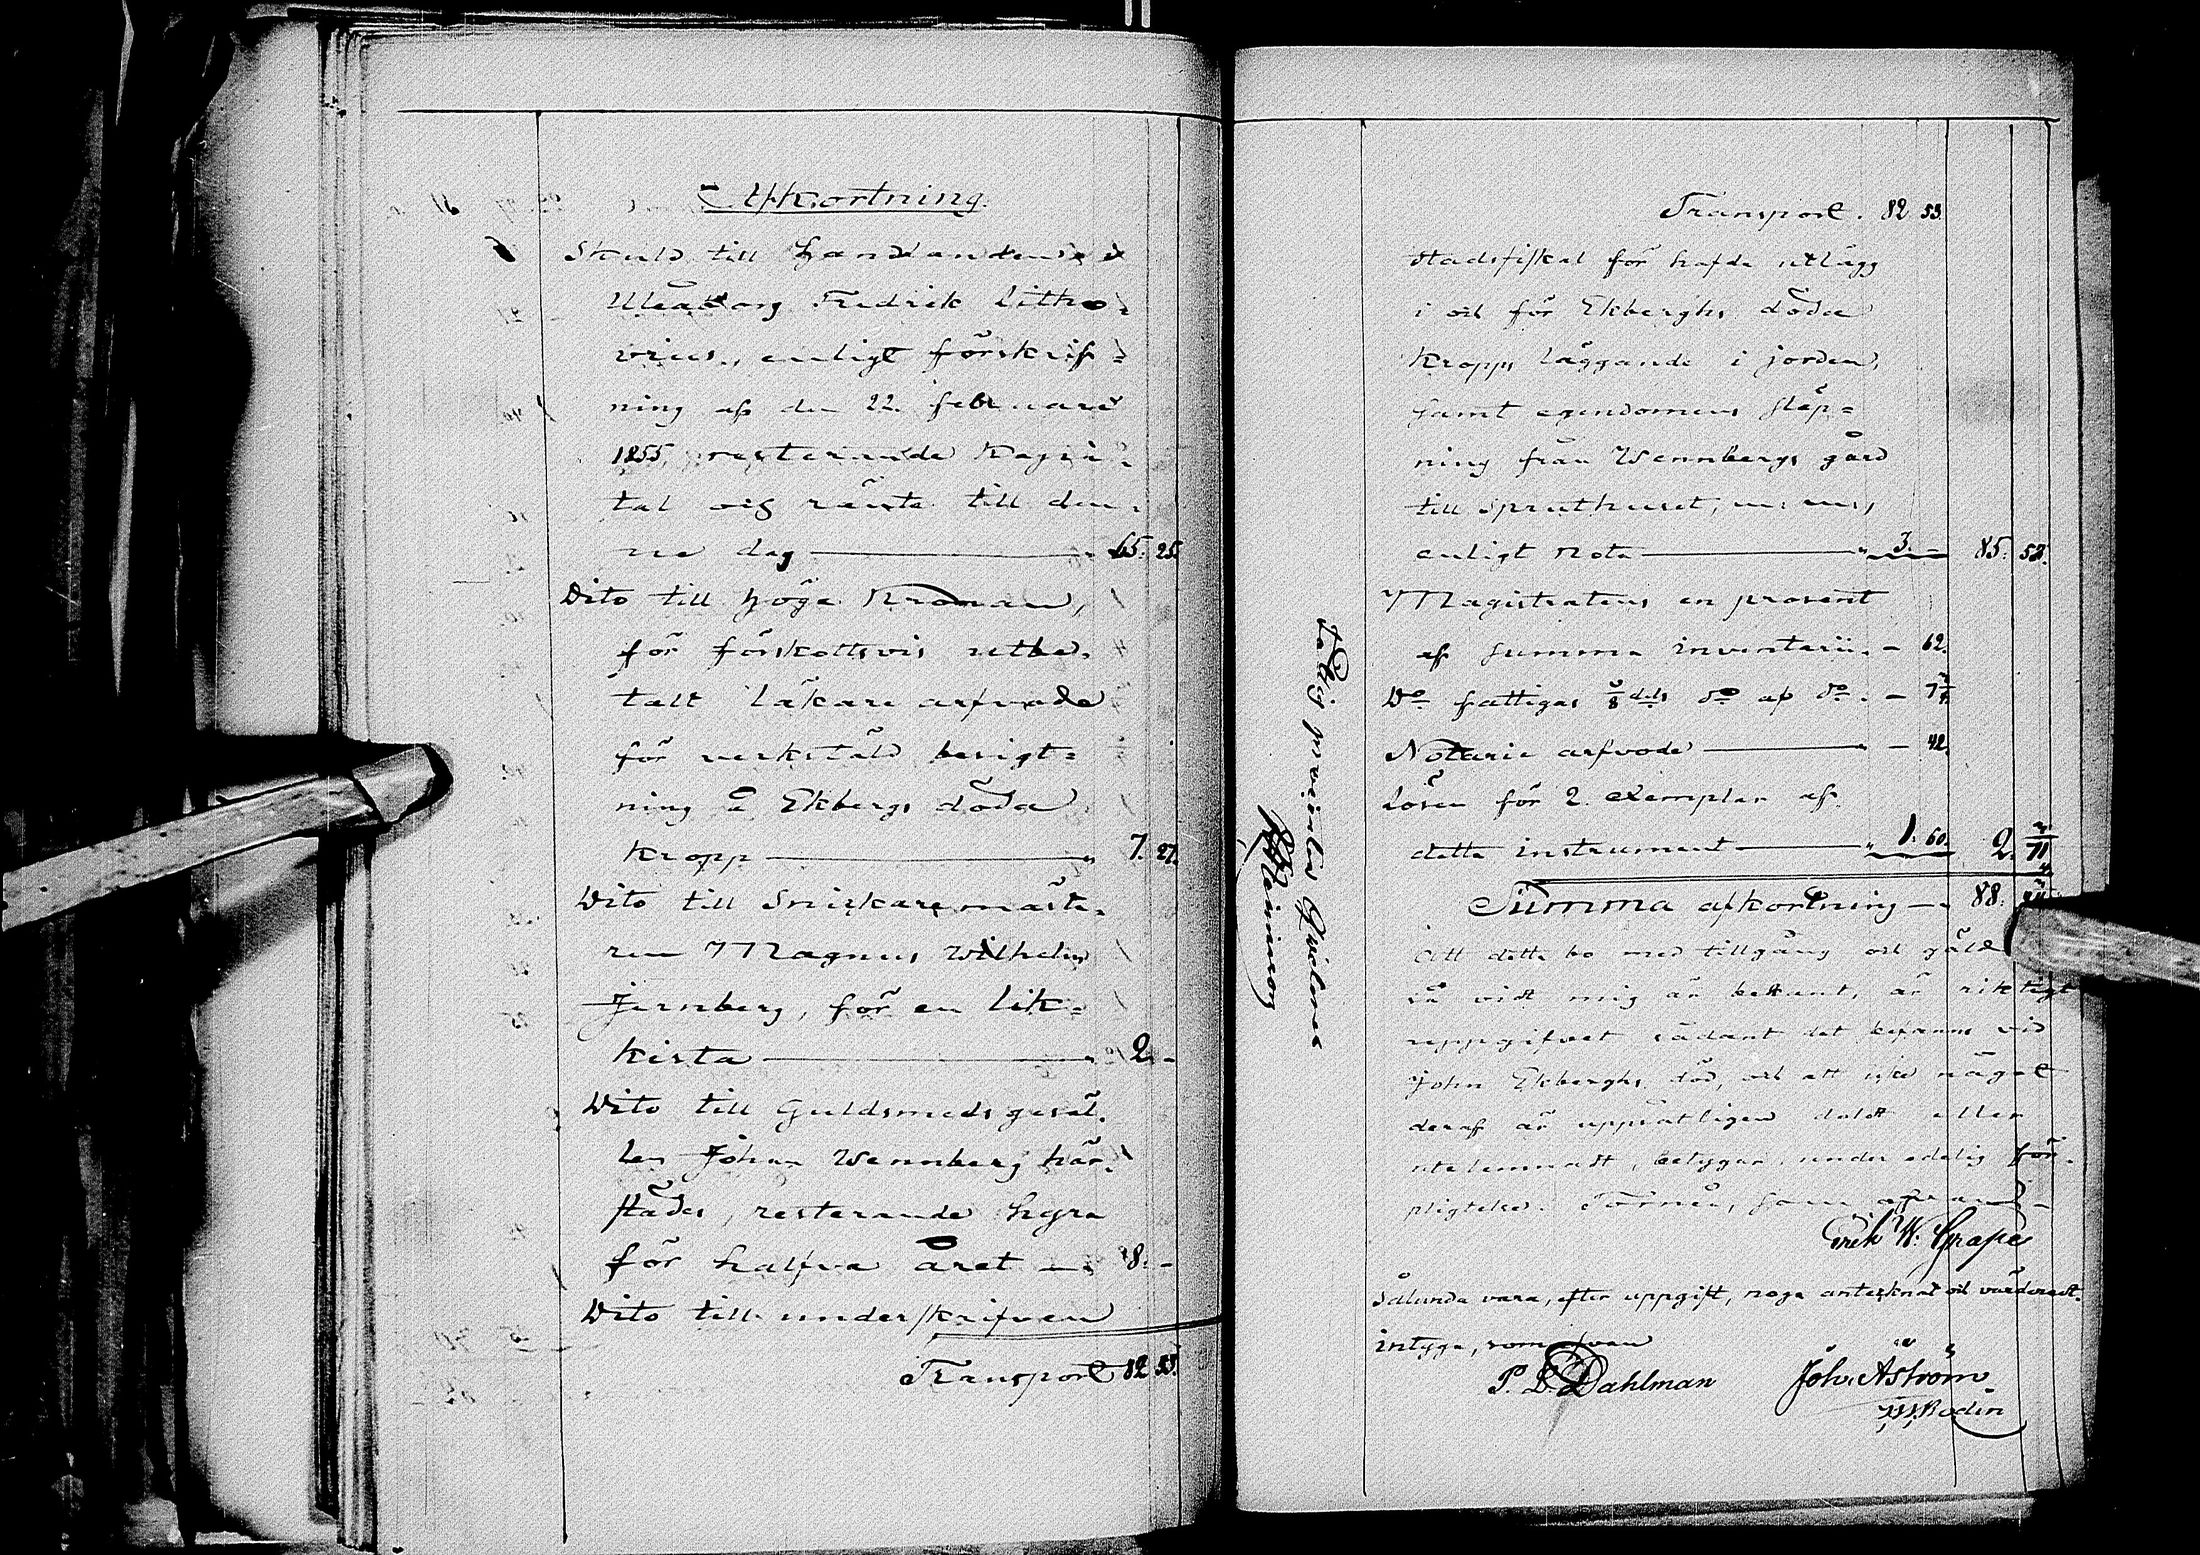 Afkortning.
Skuld till Handlanden i
Uleåborg Fredrik Litho-
vius, enligt förskrif-
ning af den 22. februarii
1855, resterande Kapi-
tal och ränta till den-
ne dag — 65. 25.
Dito till Höga Kronan,
för förskottsvis utbe-
talt läkare arfvode
för verkstäld besigt-
ning å Ekbergs döda
kropp — 7. 27.
Dito till Snickaremäste-
ren Magnus Wilhelm
Jernberg, för en lik-
kista — 2. -
Dito till Guldsmedsgesäl-
len Johan Wennberg här-
städes, resterande hyra
för halfva året — 8. -
Dito till underskrifven
Transport 82 53.
Transport. 82 53.
stadsfiskal för hafde utlägg
i och för Ekberghs döda
kropps läggande i jorden,
samt egendomens släp-
ning från Wennbergs gård
till Spruthuset, m: m:,
enligt nota — 3. - 85. 53.
Magistratens en prosent
af summa inventarii. - 62.
Do fattigas 1/8 dels do af do. - 7
Notarie arfvode — - 42.
Lösen för 2. exemplar af
detta instrument — 1. 60. 2. 71
Summa afkortning — 88.
Att detta bo med tillgång och gäld
så vidt mig är bekant, är riktigt
uppgifvet sådant det befanns vid
John Ekberghs död, och att icke något
deraf är uppsåtligen doldt eller
utelemnadt, betygar, under edelig för-
pligtelse. Torneå, som ofvan -
Erik W. Grape
Sålunda vara, efter uppgift, noga antecknat och värderadt.
intyga, som ofvan
P. L. Dahlman Joh. Aström
Bodin